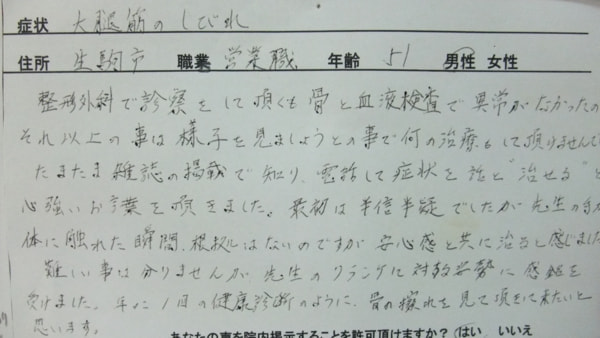 症状 大腿筋のしびれ
住所 生駒市 職業 営業職 年齢 51 男性 女性
整形外科で診察をして頂くも骨と血液検査で異常がなかったの
それ以上の事は様子を見ましょうとの事で何の治療もして頂けませんで
たまたま雑誌の掲載で知り、電話して症状を話と"治せる"と
心強いお言葉を頂きました。最初は半信半疑でしたが先生の手が
体に触れた瞬間、根拠はないのですが安心感と共に治ると感じました
難しい事は分りませんが、先生の に対する姿勢に感銘を
受けました。年に1回の健康診断のように、骨の を見て頂きに来たいと
思います。
あなたの声を院内掲示することを許可頂けますか? はい いいえ